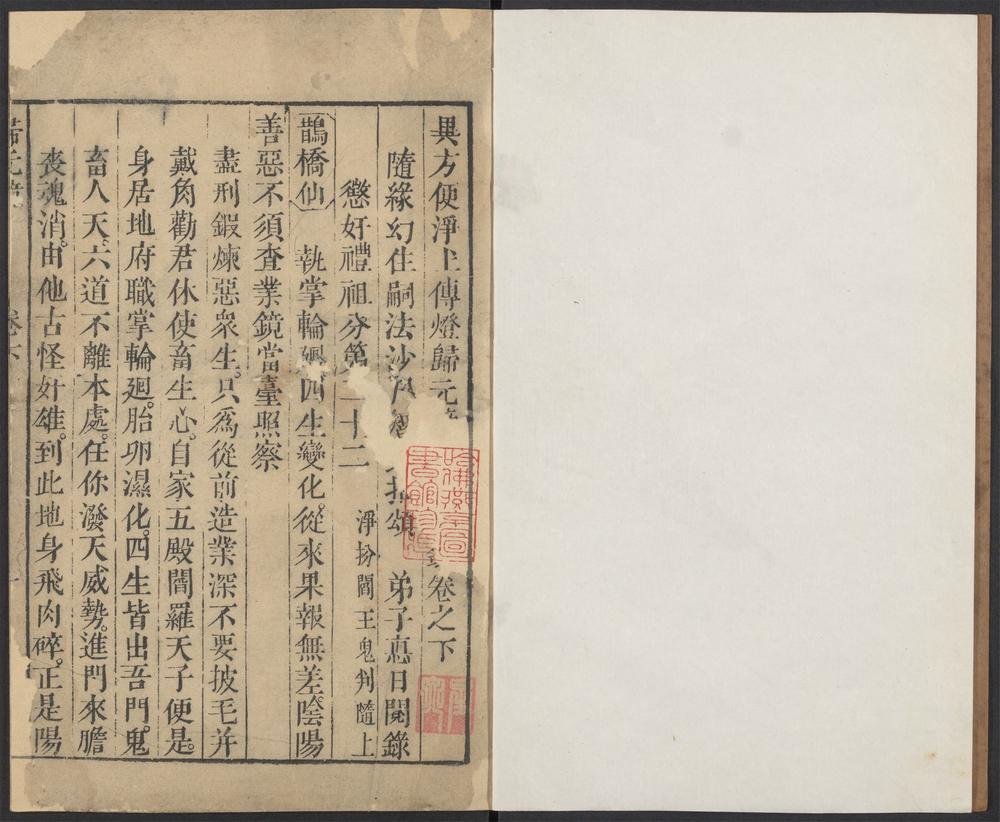 異方便淨土傳燈歸元卷之下
隨緣幻住嗣法沙頌 弟子悳日閱錄
懲奸禮祖分第二十二 淨扮閻王鬼判隨上
鵲橋仙 執掌輪廻四生變化從來果報無差陰陽
善惡不須查業鏡當臺照察
盡刑鍜煉惡衆生只爲從前造業深不要披毛并
戴角勸君休使畜生心自家五殿閻羅天子便是
身居地府職掌輪廻胎卵濕化四生皆出吾門鬼
畜人天六道不離本處任你潑天威勢進門來膽
喪魂消由他古怪奸雄到此地身飛肉碎正是陽
哈佛燕京圖書館珍藏